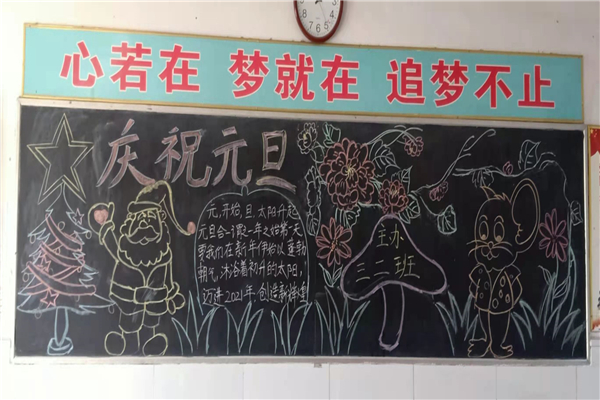 心若在 梦就在 追梦不止
庆祝元旦
元,开始,旦,太阳升起
元旦合一课是一年之始第一天
要我们在新年伊始以蓬勃
朝气,沐浴着初升的太阳,
迈进2021年.创造新辉煌
主办
三二班